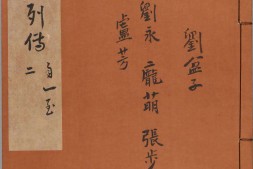 劉盆子
劉永 龐萌 張步
盧芳
列傳 自一至
二